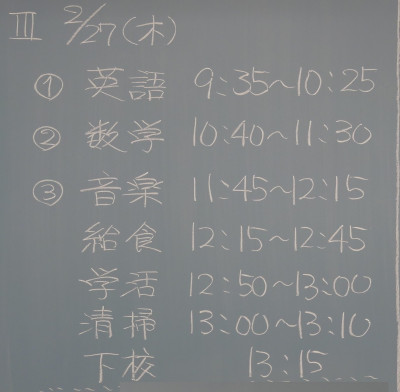 Ⅲ 2/27(木)
① 英語 9:35~10:25
② 数学 10:40~11:30
③ 音楽 11:45~12:15
給食 12:15~12:45
学活 12:50~13:00
清掃 13:00~13:10
下校 13:15